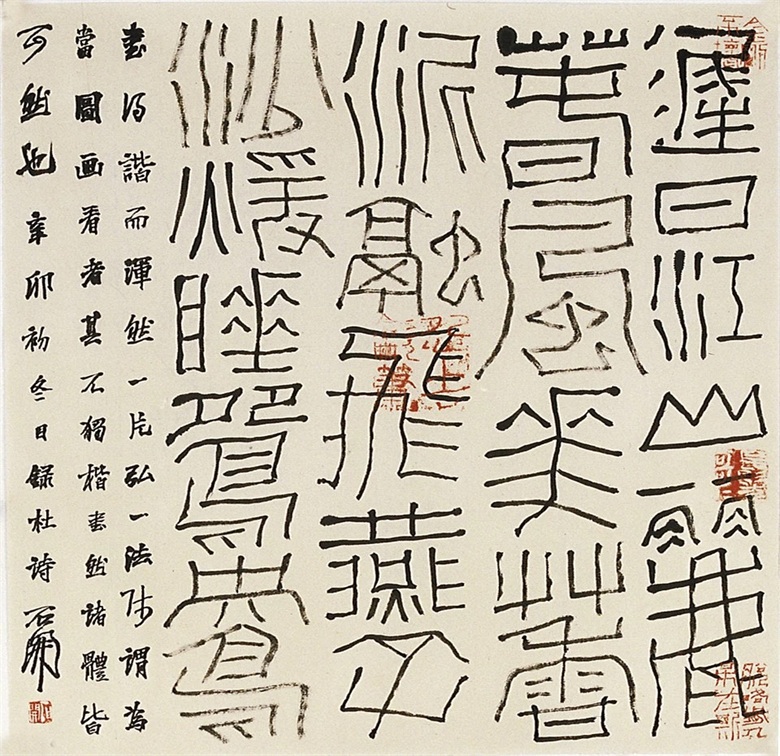 遲日江山麗
春風華艸香
泥融飛燕子
沙煖睡鴛鴦
書得諧而渾然一片弘一法師謂為
當圖画看者其不獨楷書然諸體皆
可然也辛卯初冬日録杜詩石開